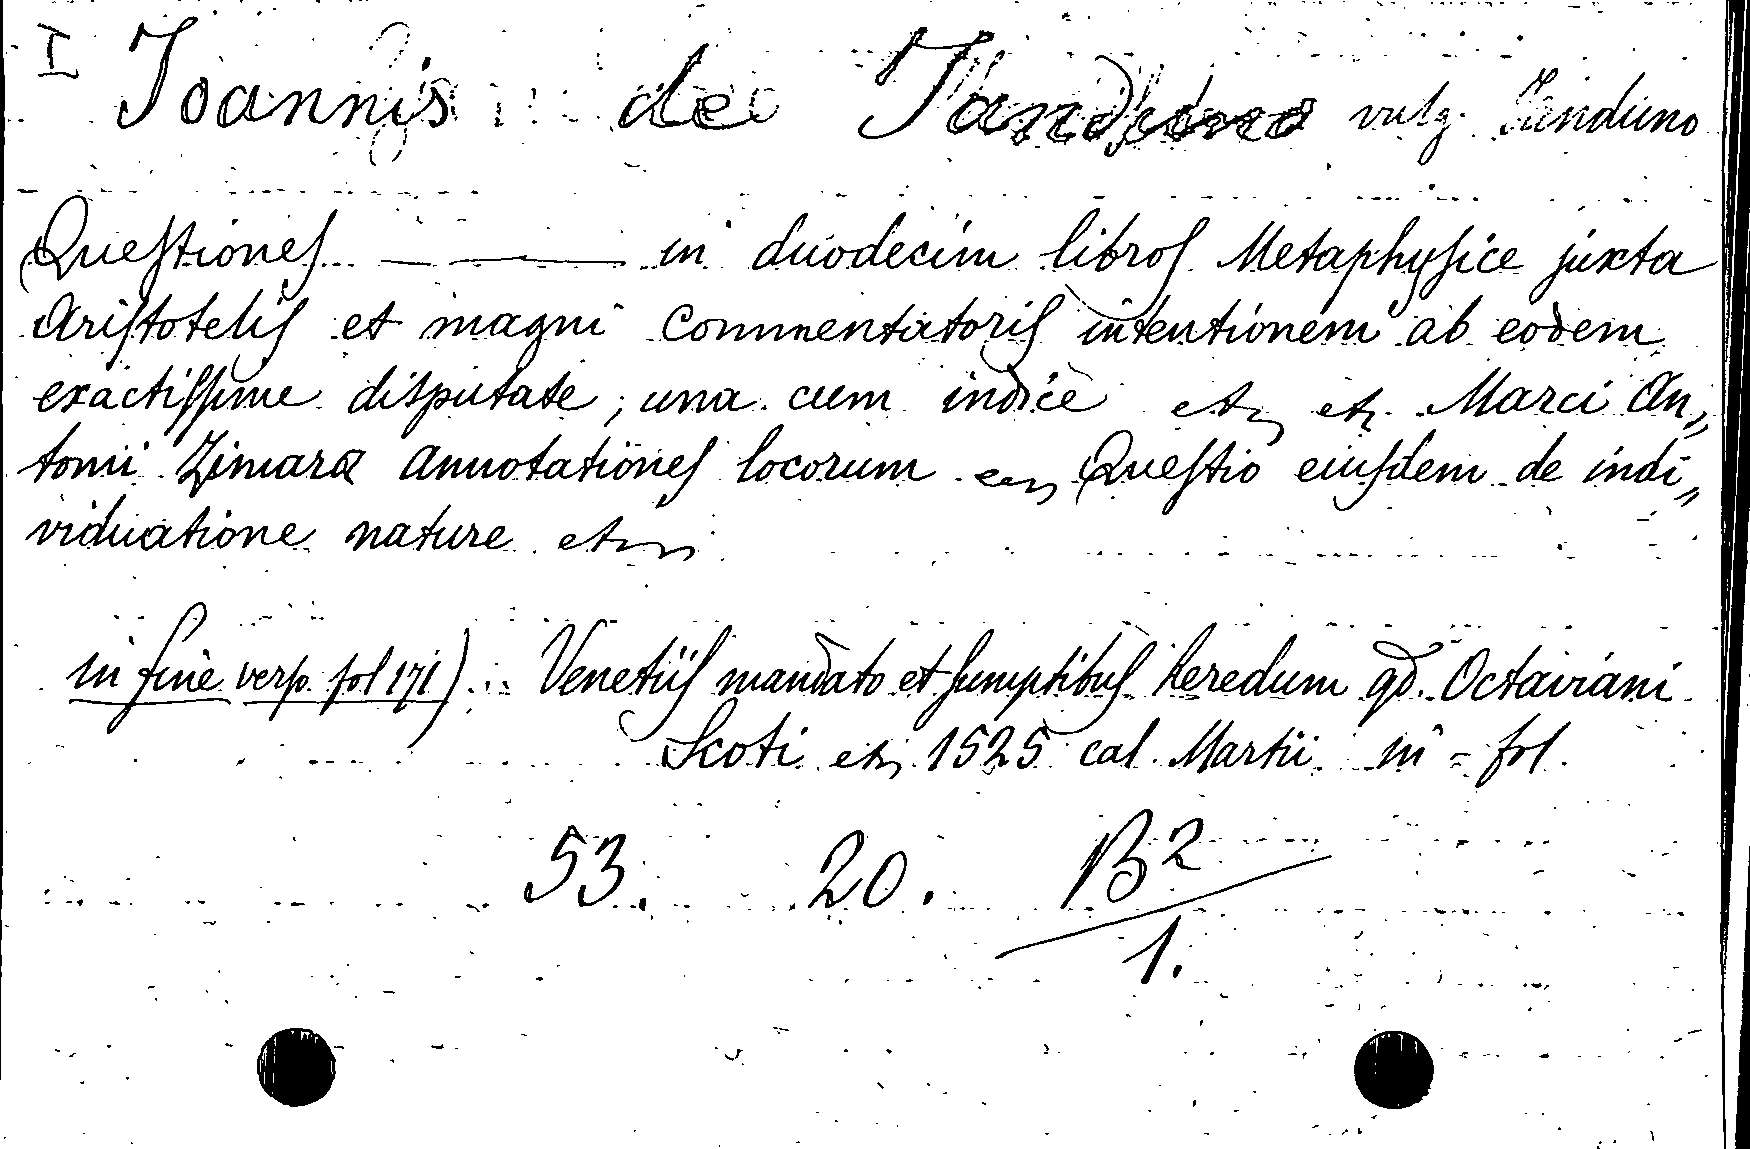 I Joannis de Janduno vulg. Janduno
Queſtioneſ — in duodecim libroſ Metaphyſice juxta
Ariſtoteliſ et magni commentatoriſ intentionem ab eodem
exactiſſime disputate, una cum indice etz etz. Marci An„
tonii Zimara annotationeſ locorum etz Queſtio eiuſdem de indi„
viduatione nature etz
in fine verſo fol 171) : Venetiiſ mandato et ſumptibuſ heredum qd. Octaviani
Scoti etz 1525 cal. Martii. in - fol.
53. 20. B2
1.